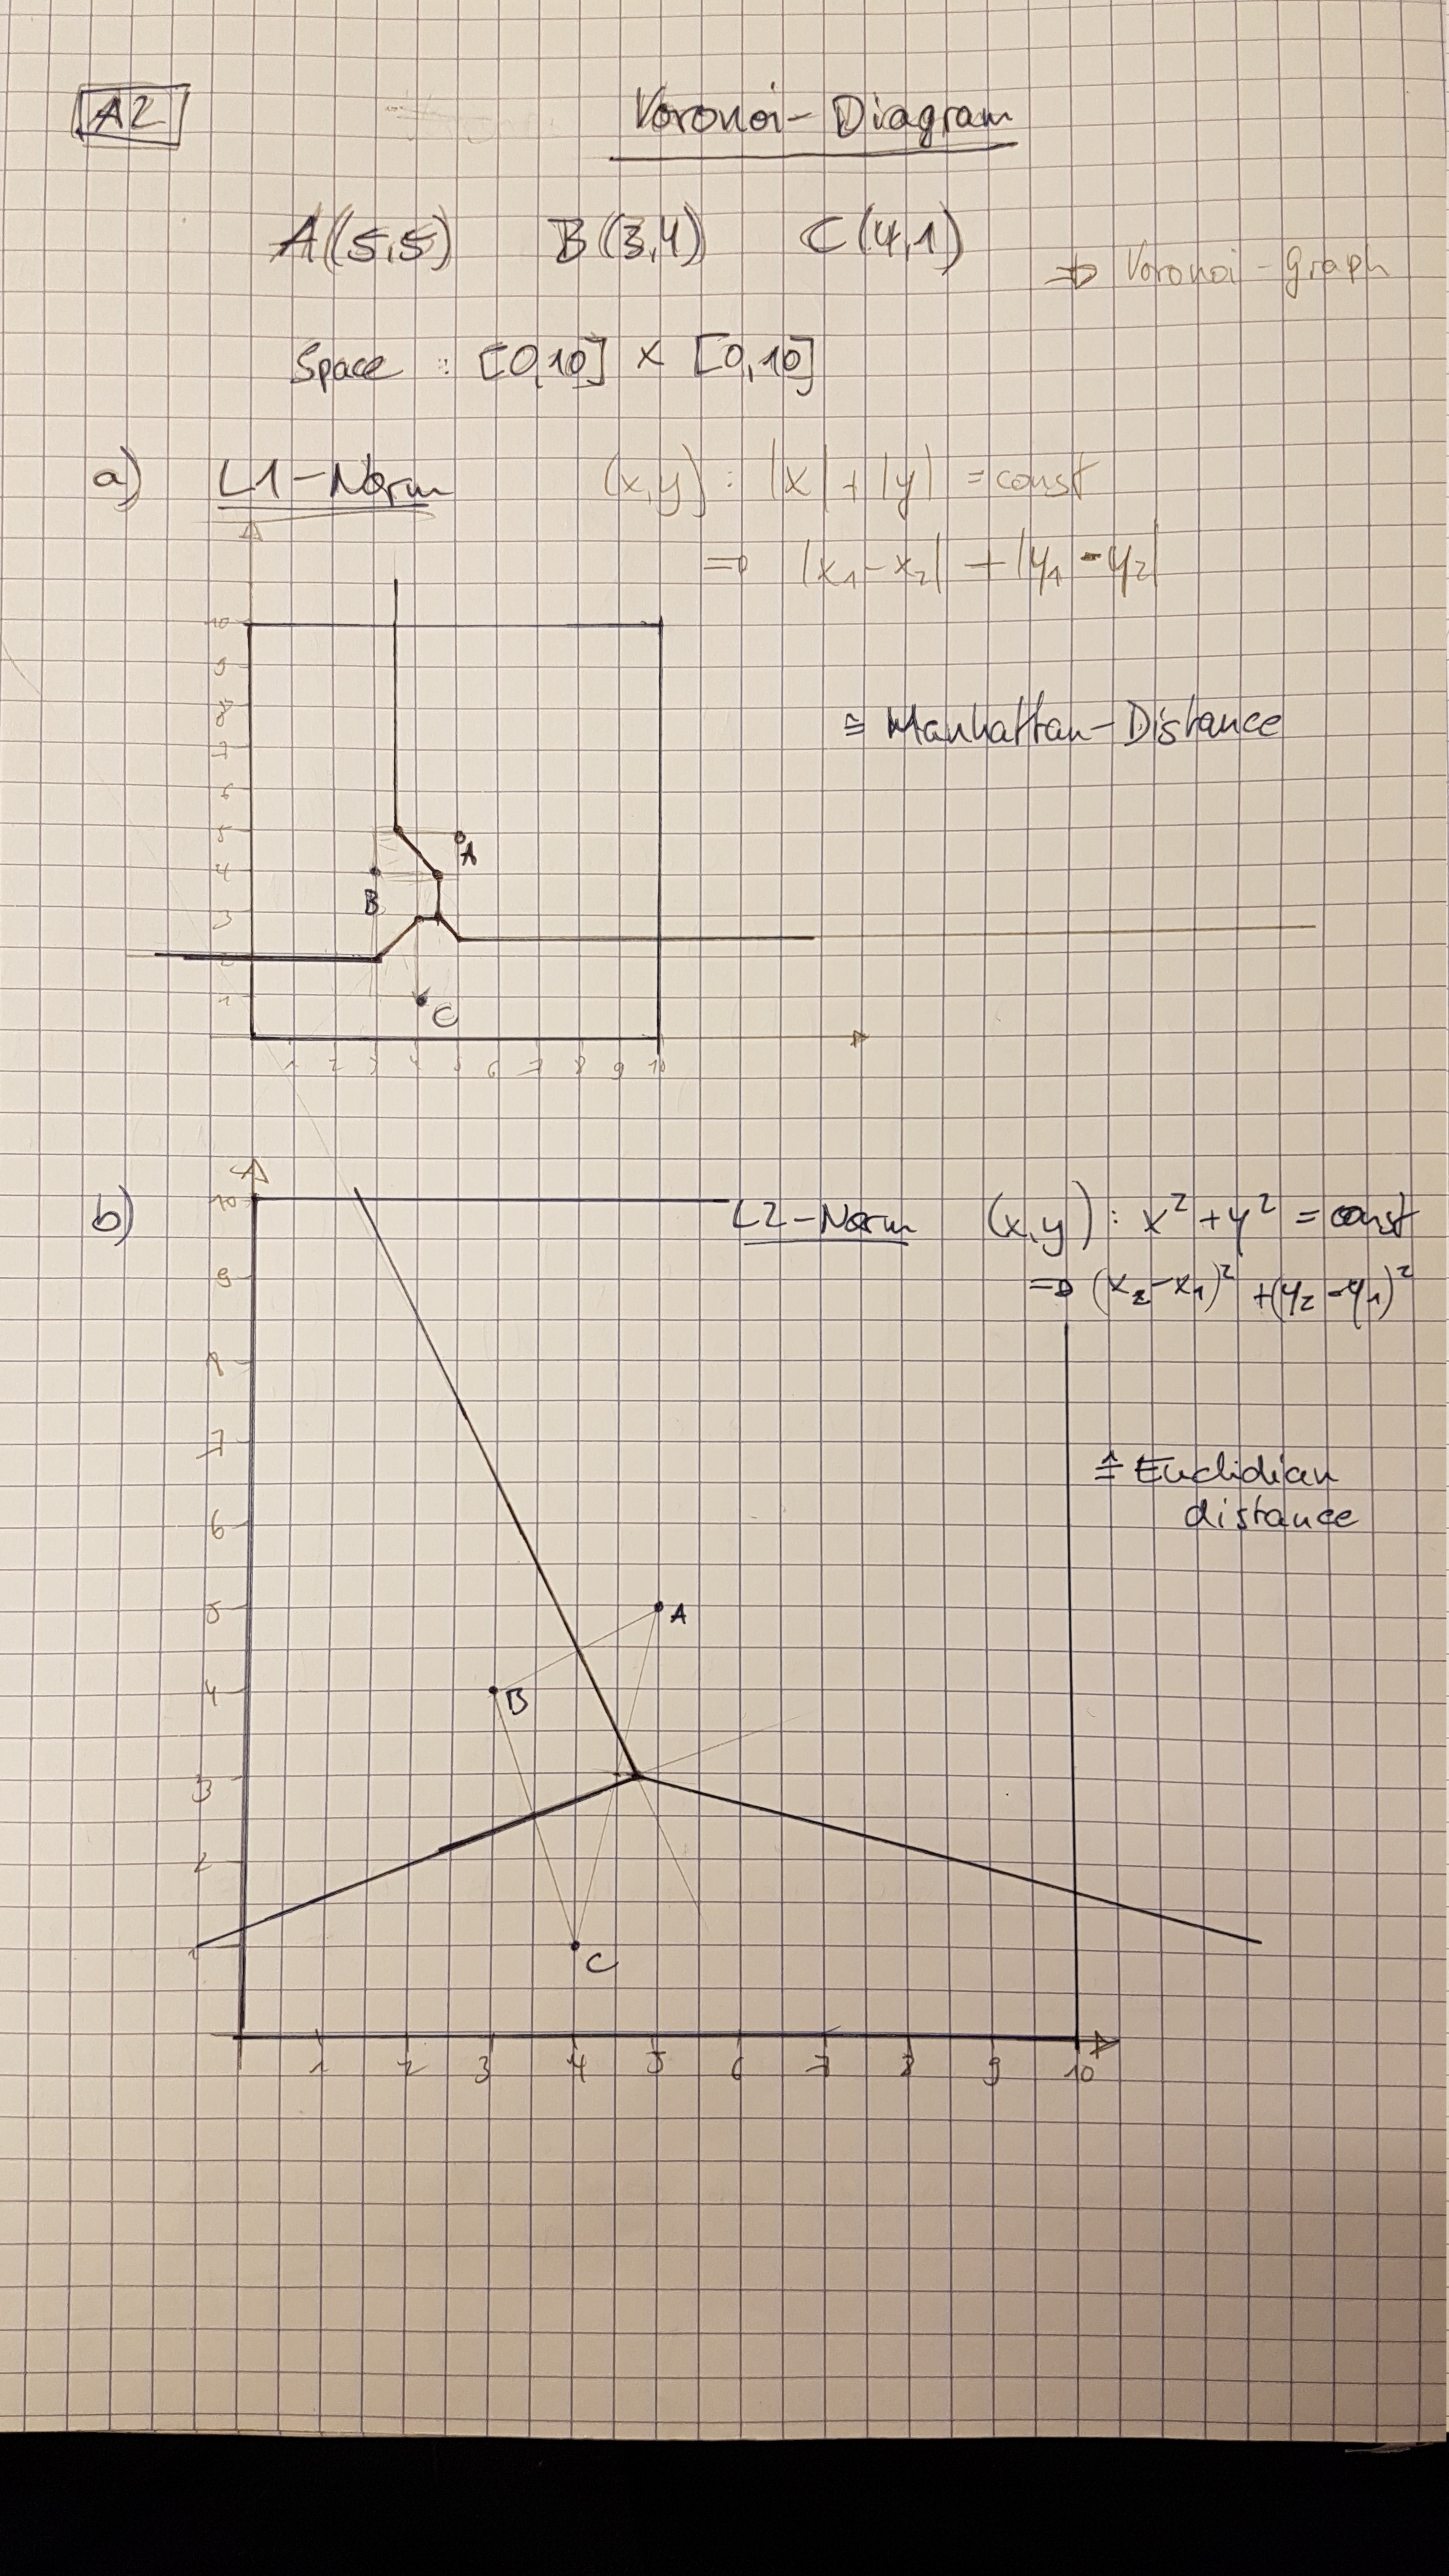 A2
Voronoi-Diagram
A(5,5) B(3,4) C(4,1)
⇒ Voronoi-Graph
Space : [0,10] × [0,10]
a) L1-Norm (x,y) : |x| + |y| = const
⇒ |x₁-x₂| + |y₁-y₂|
10
9
8
≙ Manhattan-Distance
7
6
5
A
4
B
3
2
1
C
1 2 3 4 5 6 7 8 9 10
b) 10 L2-Norm (x,y) : x² + y² = const
⇒ (x₂-x₁)² + (y₂-y₁)²
9
8
7
≙ Euclidian
distance
6
5 A
4 B
3
2
1
C
1 2 3 4 5 6 7 8 9 10